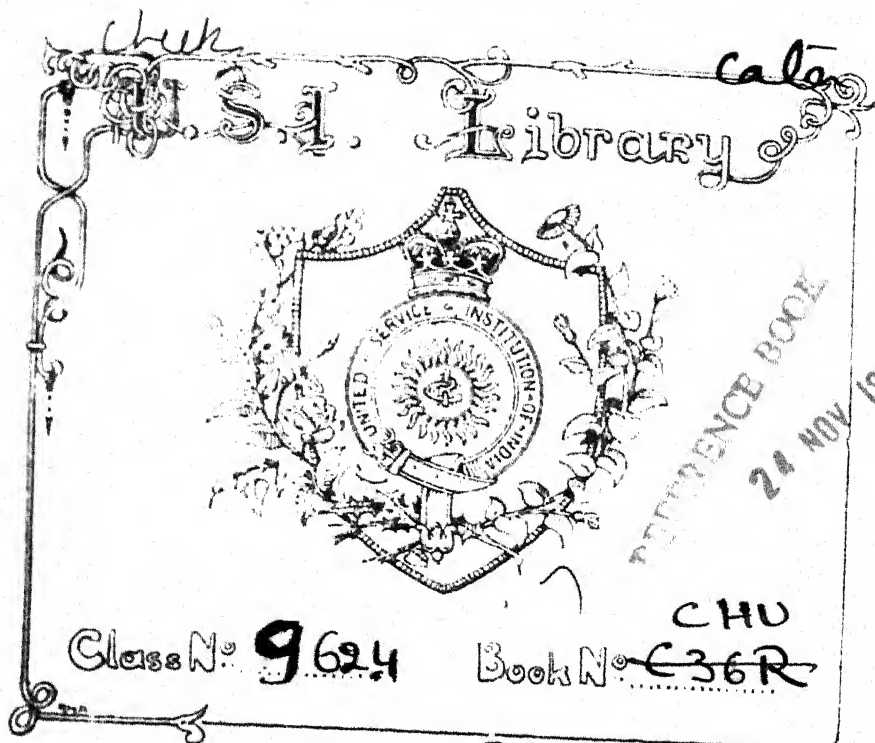 chuk
cală
U.S.I. Library
UNITED · SERVICE · INSTITUTION · OF · INDIA
REFERENCE BOOK
24 NOV 19
CHU
Class No: 9624 Book No: C36R